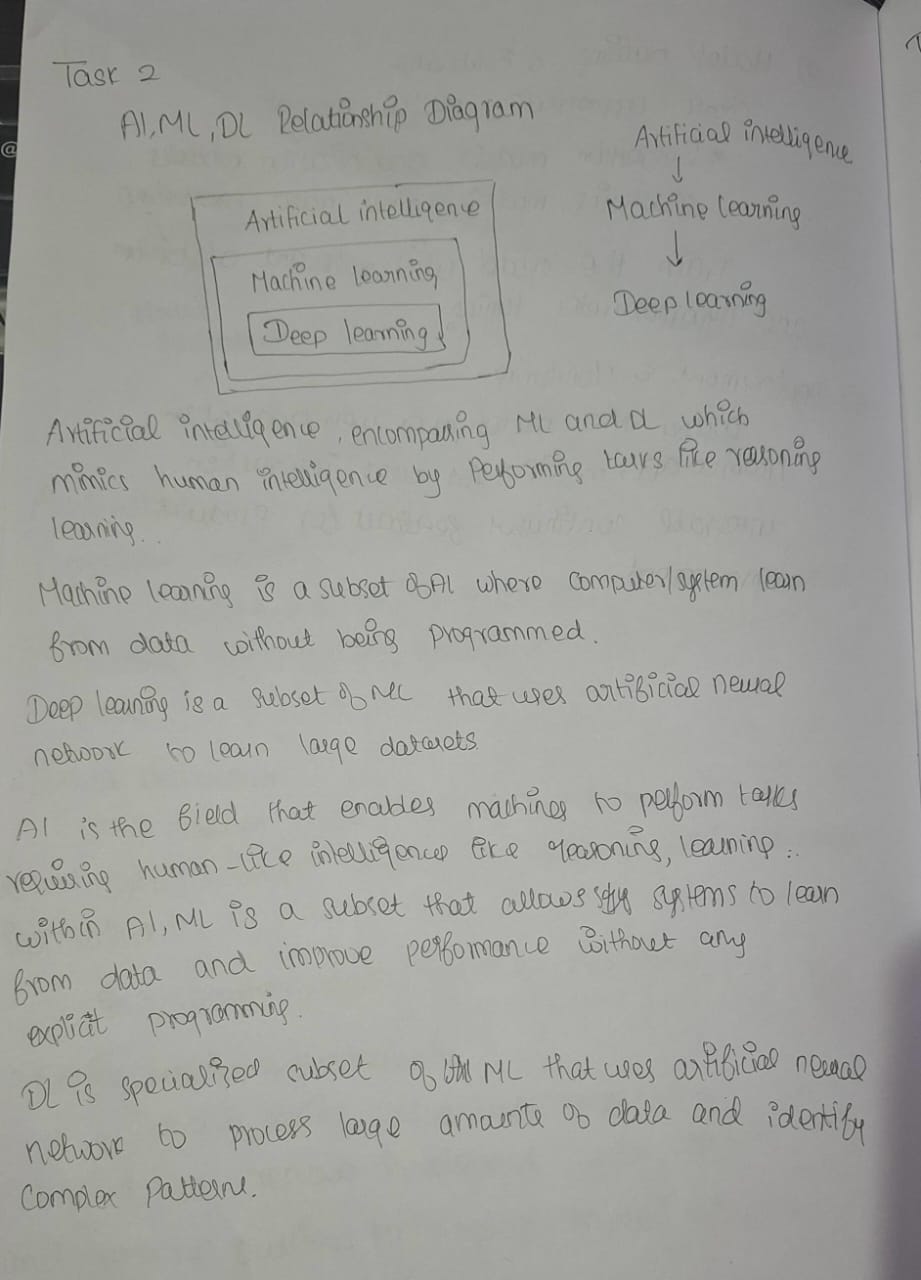 Task 2
AI, ML, DL Relationship Diagram
Artificial intelligence
Machine learning
Deep learning
Artificial intelligence
Machine learning
Deep learning
Artificial intelligence, encompassing ML and DL which
mimics human intelligence by performing tasks like reasoning
learning..
Machine learning is a subset of AI where computer/system learn
from data without being programmed.
Deep learning is a subset of ML that uses artificial neural
network to learn large datasets.
AI is the field that enables machines to perform tasks
requiring human-like intelligence like reasoning, learning..
within AI, ML is a subset that allows systems to learn
from data and improve performance without any
explicit programming.
DL is specialized subset of ML that uses artificial neural
network to process large amounts of data and identify
complex patterns.